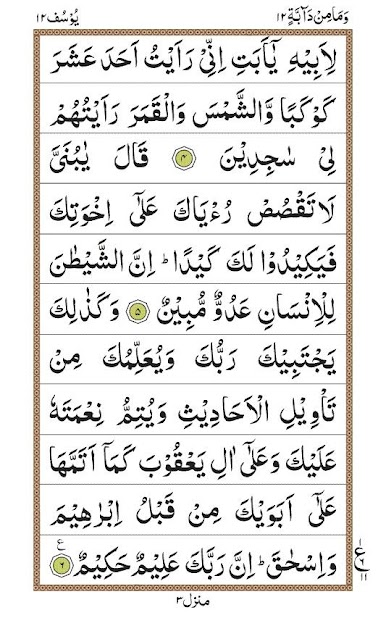 وَمَا مِنْ دَآبَّةٍ ١٢
يُوْسُف ١٢
لِاَبِيْهِ يٰۤاَبَتِ اِنِّىْ رَاَيْتُ اَحَدَ عَشَرَ
كَوْكَبًا وَّالشَّمْسَ وَالْقَمَرَ رَاَيْتُهُمْ
لِىْ سٰجِدِيْنَ ۴ قَالَ يٰبُنَىَّ
لَا تَقْصُصْ رُءْيَاكَ عَلٰٓى اِخْوَتِكَ
فَيَكِيْدُوْا لَكَ كَيْدًا ؕ اِنَّ الشَّيْطٰنَ
لِلْاِنْسَانِ عَدُوٌّ مُّبِيْنٌ ۵ وَكَذٰلِكَ
يَجْتَبِيْكَ رَبُّكَ وَيُعَلِّمُكَ مِنْ
تَاْوِيْلِ الْاَحَادِيْثِ وَيُتِمُّ نِعْمَتَهٗ
عَلَيْكَ وَعَلٰٓى اٰلِ يَعْقُوْبَ كَمَاۤ اَتَمَّهَا
عَلٰٓى اَبَوَيْكَ مِنْ قَبْلُ اِبْرٰهِيْمَ
وَاِسْحٰقَ ؕ اِنَّ رَبَّكَ عَلِيْمٌ حَكِيْمٌ ۶ ع
١
ع ۶
١١
منزل ٣